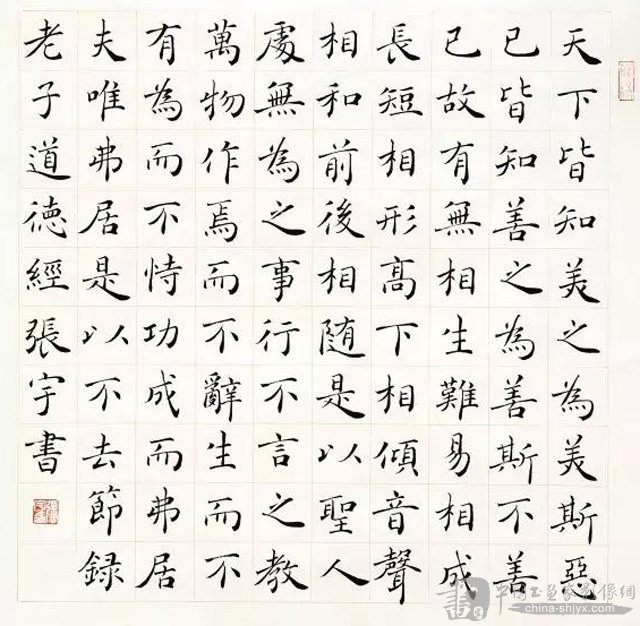 天下皆知美之為美斯惡
已皆知善之為善斯不善
已故有無相生難易相成
長短相形高下相傾音聲
相和前後相随是以聖人
處無為之事行不言之教
萬物作焉而不辭生而不
有為而不恃功成而弗居
夫唯弗居是以不去節録
老子道德經張宇書
china-shjyx.com